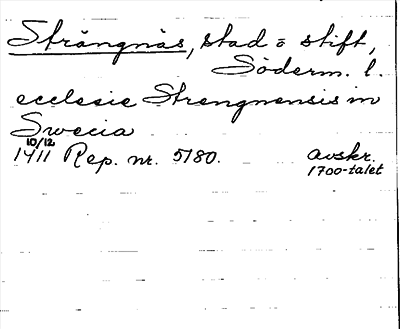 Strängnäs, stad o stift,
Söderm. l.
ecclesie Strengnensis in
Swecia
10/12
1411 Rep. nr. 5180. avskr.
1700-talet